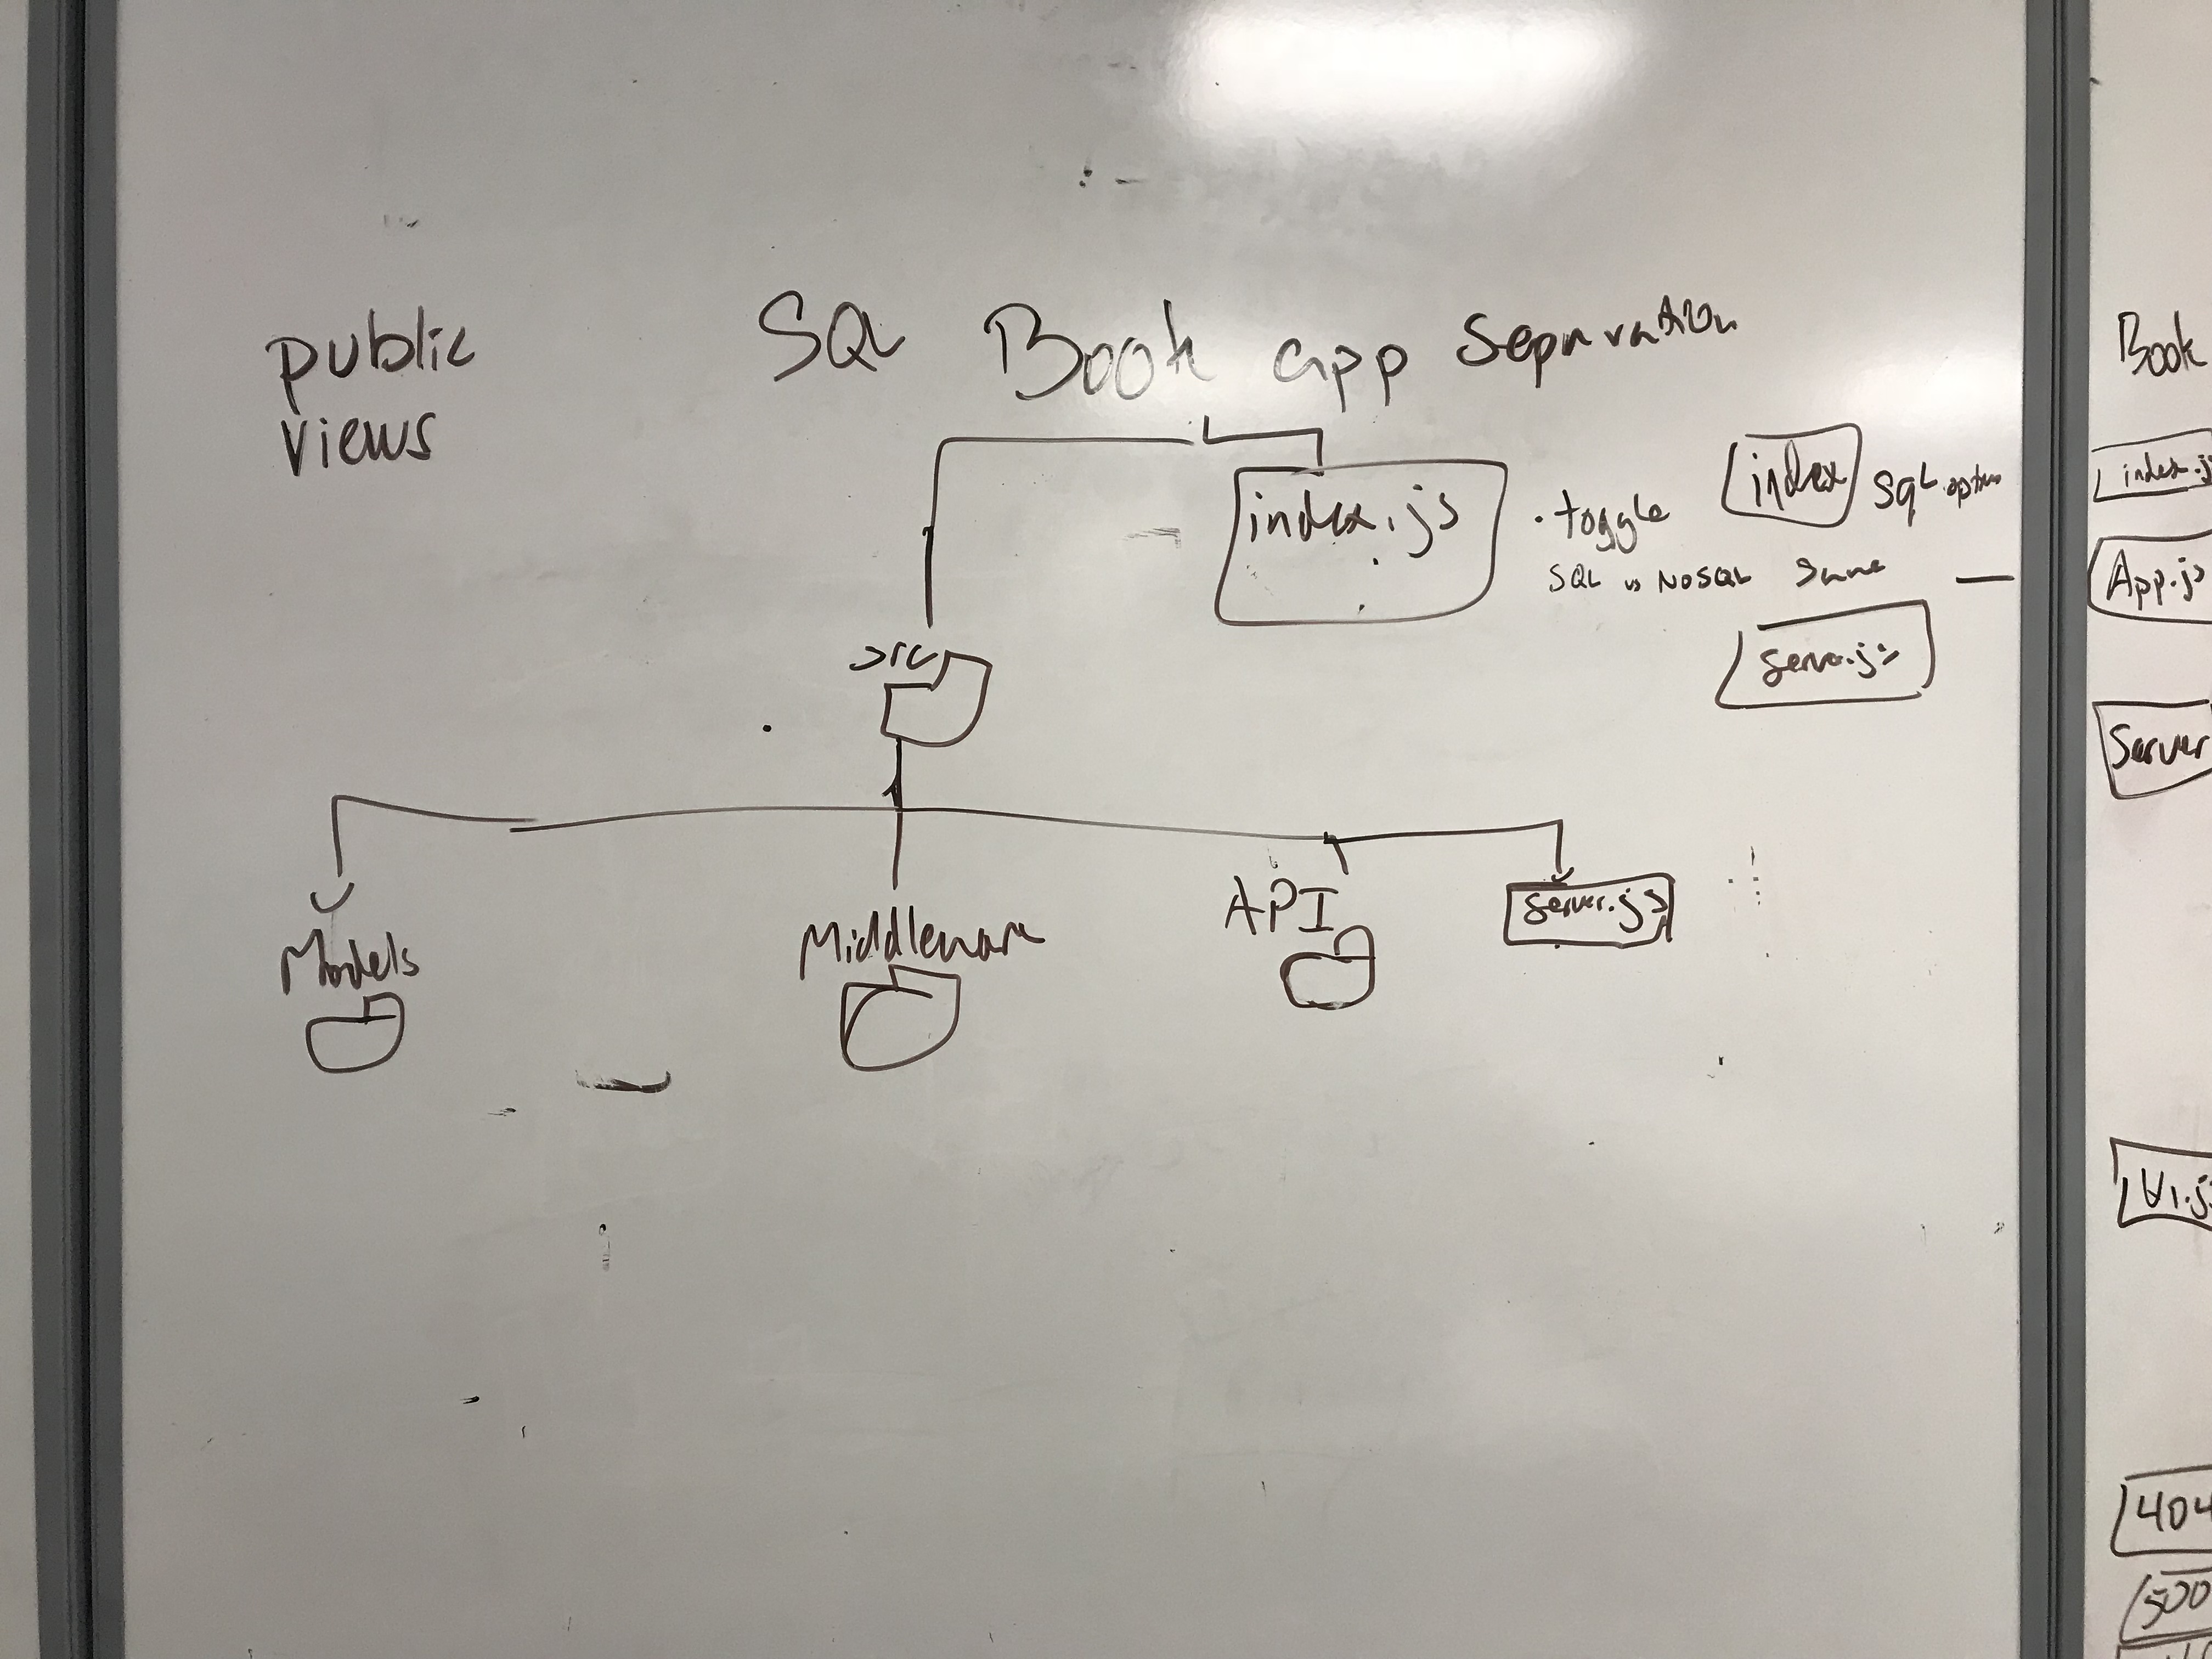 public
views
SQL Book app Separation
index.js
• toggle
SQL vs NoSQL
index
SQL option
Same
server.js
src
Models
Middleware
API
server.js
Book
index.j
App.js
Server
UI.j
404
500